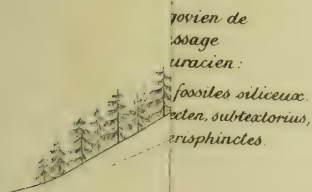 govien de
ssage
uracien:
fossiles siliceux.
ecten, subtextorius,
erisphinctes.